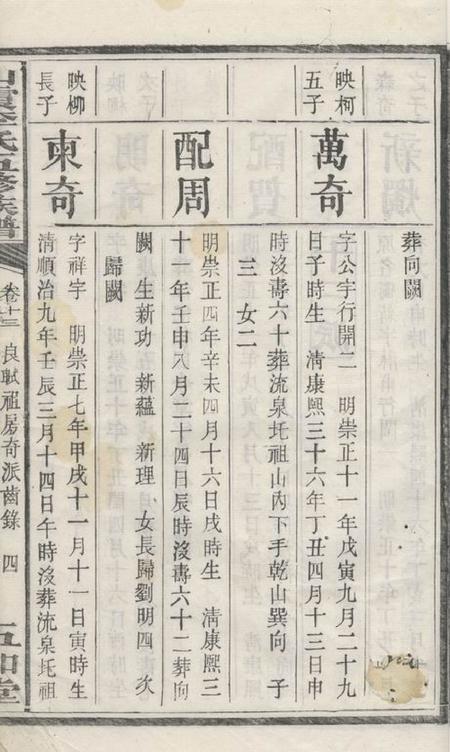 葬向闕
映柯
五子
萬奇
字公宇行開二　明崇正十一年戊寅九月二十九
日子時生　清康熙三十六年丁丑四月十三日申
時沒壽六十葬流泉圫祖山內下手乾山巽向　子
三　女二
配周
明崇正四年辛未四月十六日戌時生　清康熙三
十一年壬申八月二十四日辰時沒壽六十二葬向
闕　生新功　新蘊　新理　女長歸劉明四　次
歸闕
映柳
長子
東奇
字祥宇　明崇正七年甲戌十一月十一日寅時生
清順治九年壬辰三月十四日午時沒葬流泉圫祖
氏五修族譜
卷十三　良賦祖房奇派齒錄　四
五知堂